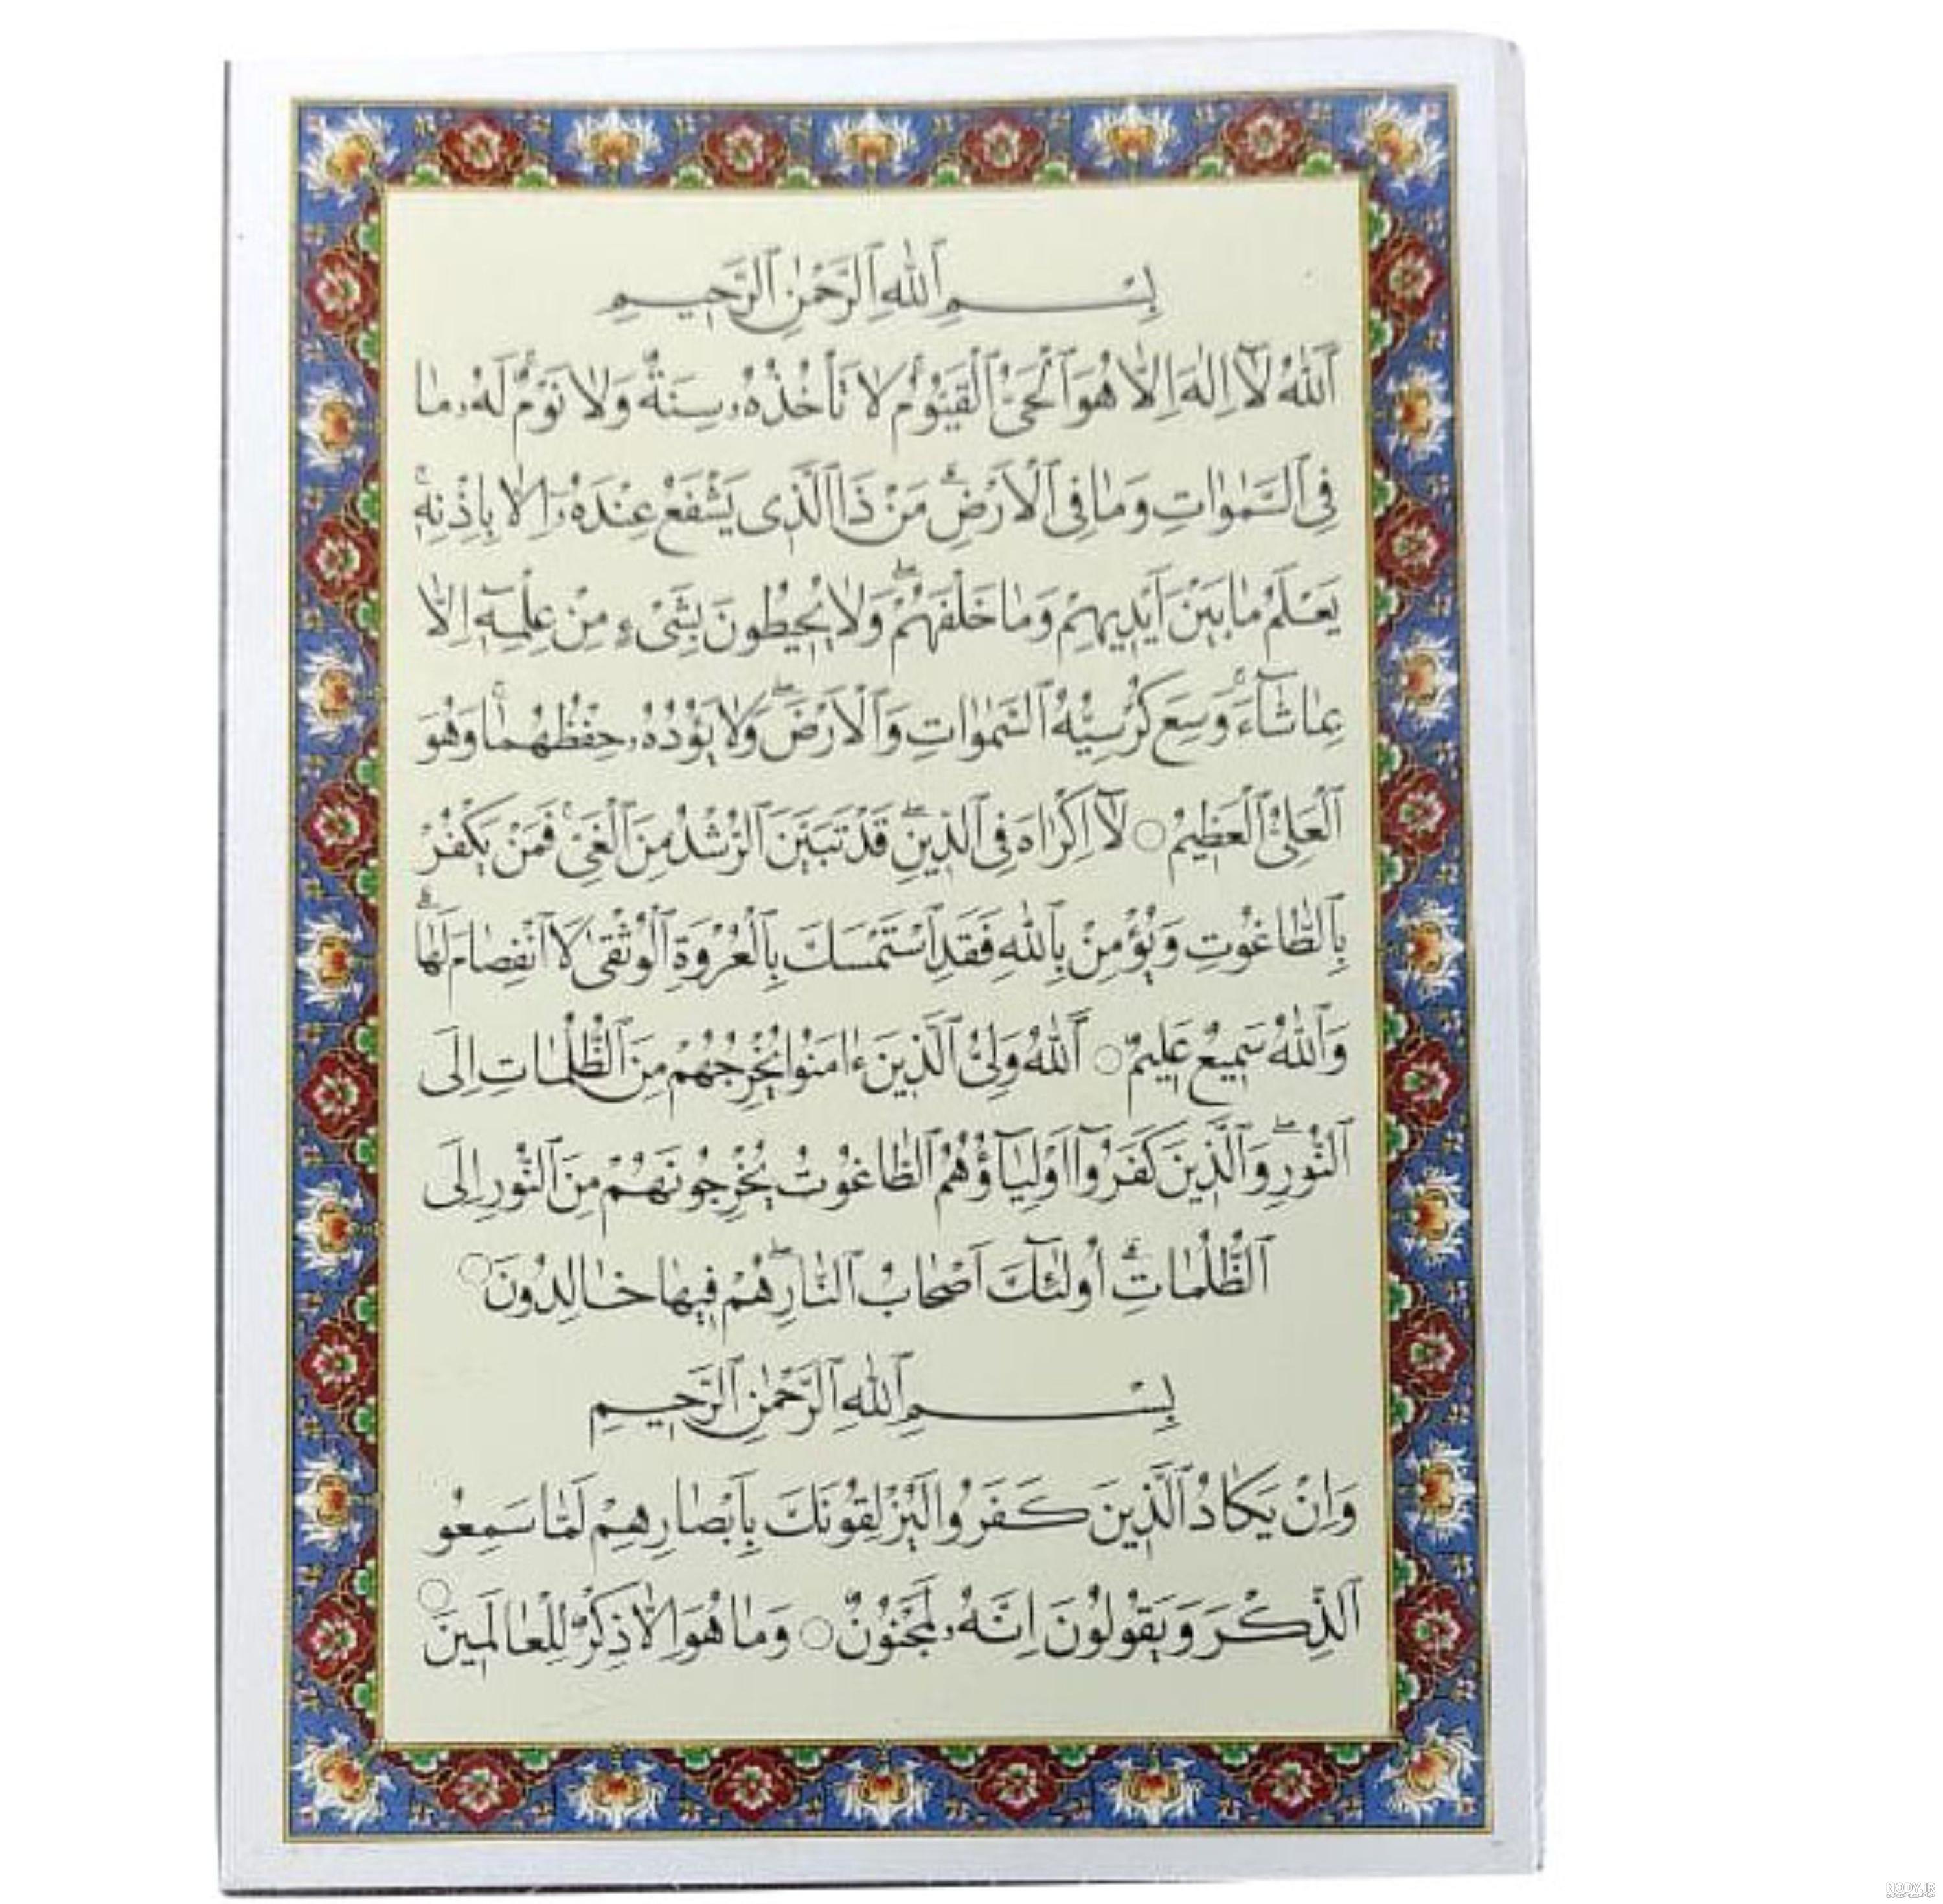 بِسْمِ ٱللّٰهِ ٱلرَّحْمٰنِ ٱلرَّحِيمِ
ٱللّٰهُ لَآ اِلٰهَ اِلَّا هُوَ ٱلْحَىُّ ٱلْقَيُّومُ ۚ لَا تَأْخُذُهُۥ سِنَةٌ وَلَا نَوْمٌ ۚ لَهُۥ مَا
فِى ٱلسَّمٰوَاتِ وَمَا فِى ٱلْاَرْضِ ۗ مَنْ ذَا ٱلَّذِى يَشْفَعُ عِنْدَهُۥٓ اِلَّا بِاِذْنِهِ ۚ
يَعْلَمُ مَا بَيْنَ اَيْدِيهِمْ وَمَا خَلْفَهُمْ ۖ وَلَا يُحِيطُونَ بِشَىْءٍ مِنْ عِلْمِهِٓ اِلَّا
بِمَا شَآءَ ۚ وَسِعَ كُرْسِيُّهُ ٱلسَّمٰوَاتِ وَٱلْاَرْضَ ۖ وَلَا يَؤُدُهُۥ حِفْظُهُمَا ۚ وَهُوَ
ٱلْعَلِىُّ ٱلْعَظِيمُ ○ لَآ اِكْرَاهَ فِى ٱلدِّينِ ۖ قَدْ تَبَيَّنَ ٱلرُّشْدُ مِنَ ٱلْغَىِّ ۚ فَمَنْ يَكْفُرْ
بِٱلطَّاغُوتِ وَيُؤْمِنْ بِٱللّٰهِ فَقَدِ ٱسْتَمْسَكَ بِٱلْعُرْوَةِ ٱلْوُثْقٰى لَا ٱنْفِصَامَ لَهَا ۗ
وَٱللّٰهُ سَمِيعٌ عَلِيمٌ ○ ٱللّٰهُ وَلِىُّ ٱلَّذِينَ ءَامَنُوا يُخْرِجُهُمْ مِنَ ٱلظُّلُمَاتِ اِلَى
ٱلنُّورِ ۖ وَٱلَّذِينَ كَفَرُوٓا اَوْلِيَآؤُهُمُ ٱلطَّاغُوتُ يُخْرِجُونَهُمْ مِنَ ٱلنُّورِ اِلَى
ٱلظُّلُمَاتِ ۗ اُولٰٓئِكَ اَصْحَابُ ٱلنَّارِ ۖ هُمْ فِيهَا خَالِدُونَ ○
بِسْمِ ٱللّٰهِ ٱلرَّحْمٰنِ ٱلرَّحِيمِ
وَاِنْ يَكَادُ ٱلَّذِينَ كَفَرُوا لَيُزْلِقُونَكَ بِاَبْصَارِهِمْ لَمَّا سَمِعُو
ٱلذِّكْرَ وَيَقُولُونَ اِنَّهُۥ لَمَجْنُونٌ ○ وَمَا هُوَ اِلَّا ذِكْرٌ لِلْعَالَمِينَ ○
NODY.IR